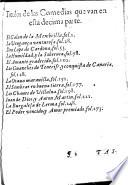 Titulo de las Comedias que van en
esta decima parte.
El Galan de la Membrilla. fol. 1.
La Vengança venturosa. fol. 28.
Don Lope de Cardona. fol. 53.
La Humildad, y la Soberuia. fol. 78.
El Amante agradecido. fol. 102.
Los Guanches de Tenerife, y conquista de Canaria,
fol. 128.
La Otaua marauilla. fol. 151.
El Sembrar en buena tierra. fol. 177.
Los Chaues de Villalua. fol. 198.
Iuan de Dios, y Anton Martin. fol. 222.
La Burgalesa de Lerma. fol. 248.
El Poder vencido, y Amor premiado. fol. 273.